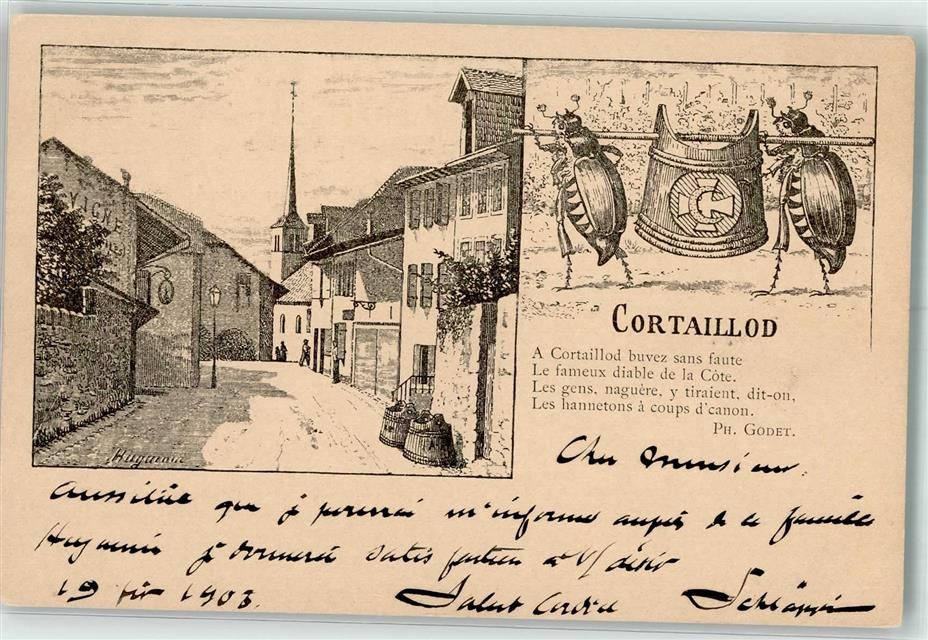 VIGNE
Huguenin
CORTAILLOD
A Cortaillod buvez sans faute
Le fameux diable de la Côte.
Les gens, naguère, y tiraient, dit-on,
Les hannetons à coups d'canon.
PH. GODET.
Cher monsieur
aussitôt que je pourrai m'informer auprès de la famille
je donnerai satisfaction à v/ désir
19 1903. Salut cordial